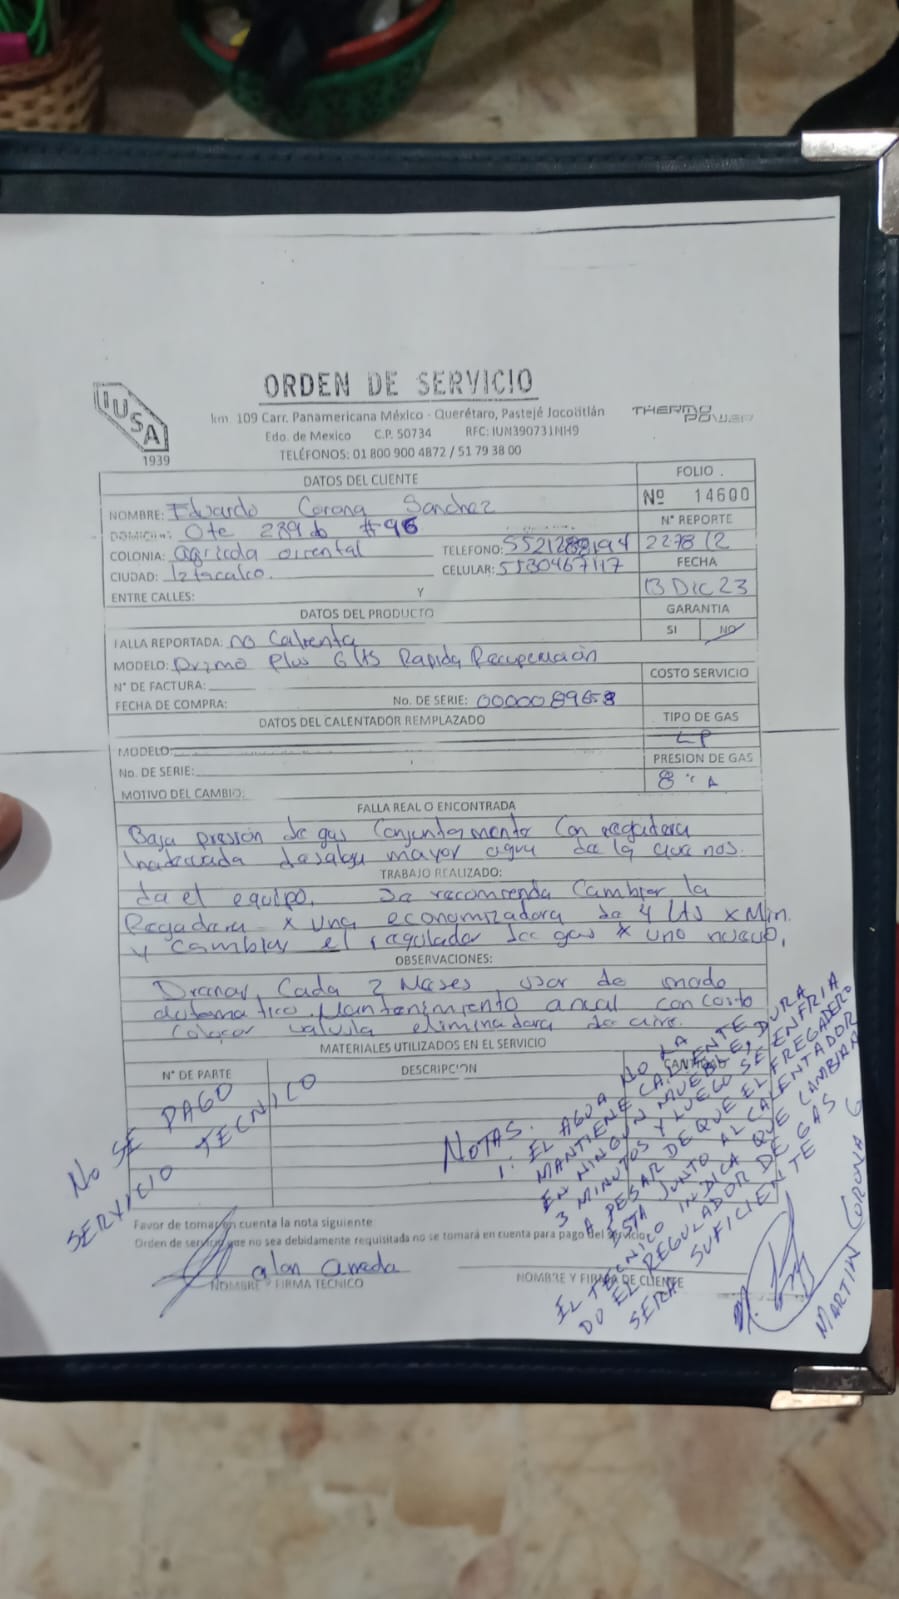 IUSA
1939
ORDEN DE SERVICIO
km. 109 Carr. Panamericana México - Querétaro, Pastejé Jocotitlán
Edo. de Mexico C.P. 50734 RFC: IUN390731NH9
TELÉFONOS: 01 800 900 4872 / 51 79 38 00
THERMO POWER
DATOS DEL CLIENTE
FOLIO
Nº 14600
NOMBRE: Eduardo Corona Sanchez
N° REPORTE
DOMICILIO: Ote 239 b #96
COLONIA: agricola oriental TELEFONO: 2278 12
CIUDAD: Iztacalco. CELULAR: 5530467117
FECHA
ENTRE CALLES: Y
13 Dic 23
DATOS DEL PRODUCTO
GARANTIA
SI NO
FALLA REPORTADA: no Calienta
MODELO: Primo Plus 6 lts Rapida Recuperación
COSTO SERVICIO
N° DE FACTURA:
FECHA DE COMPRA: No. DE SERIE:
DATOS DEL CALENTADOR REMPLAZADO
TIPO DE GAS
LP
MODELO:
PRESION DE GAS
No. DE SERIE:
8 " A
MOTIVO DEL CAMBIO:
FALLA REAL O ENCONTRADA
Baja presión de gas Conjuntamente Con regadera
Inadecuada desaloja mayor agua de la que nos.
TRABAJO REALIZADO:
da el equipo. Se recomienda Cambiar la
Regadera x una economizadora de 4 lts x Min.
y Cambiar el regulador de gas x uno nuevo.
OBSERVACIONES:
Drenar Cada 2 Meses, usar de modo
automatico. Mantenimiento anual con costo
Colocar valvula eliminadora de aire.
MATERIALES UTILIZADOS EN EL SERVICIO
N° DE PARTE DESCRIPCION
NO SE PAGO
SERVICIO TECNICO
NOTAS:
1. EL AGUA NO LA
MANTIENE CALIENTE
EN NINGUN MUEBLE, DURA
3 MINUTOS Y LUEGO SE ENFRIA
A PESAR DE QUE EL FREGADERO
ESTA JUNTO AL CALENTADOR
EL TECNICO INDICA QUE CAMBIAN
DO EL REGULADOR DE GAS
SERA SUFICIENTE
Favor de tomar en cuenta la nota siguiente
Orden de servicio que no sea debidamente requisitada no se tomará en cuenta para pago del servicio
alan
NOMBRE Y FIRMA TECNICO
NOMBRE Y FIRMA DE CLIENTE
MARTIN CORONA G